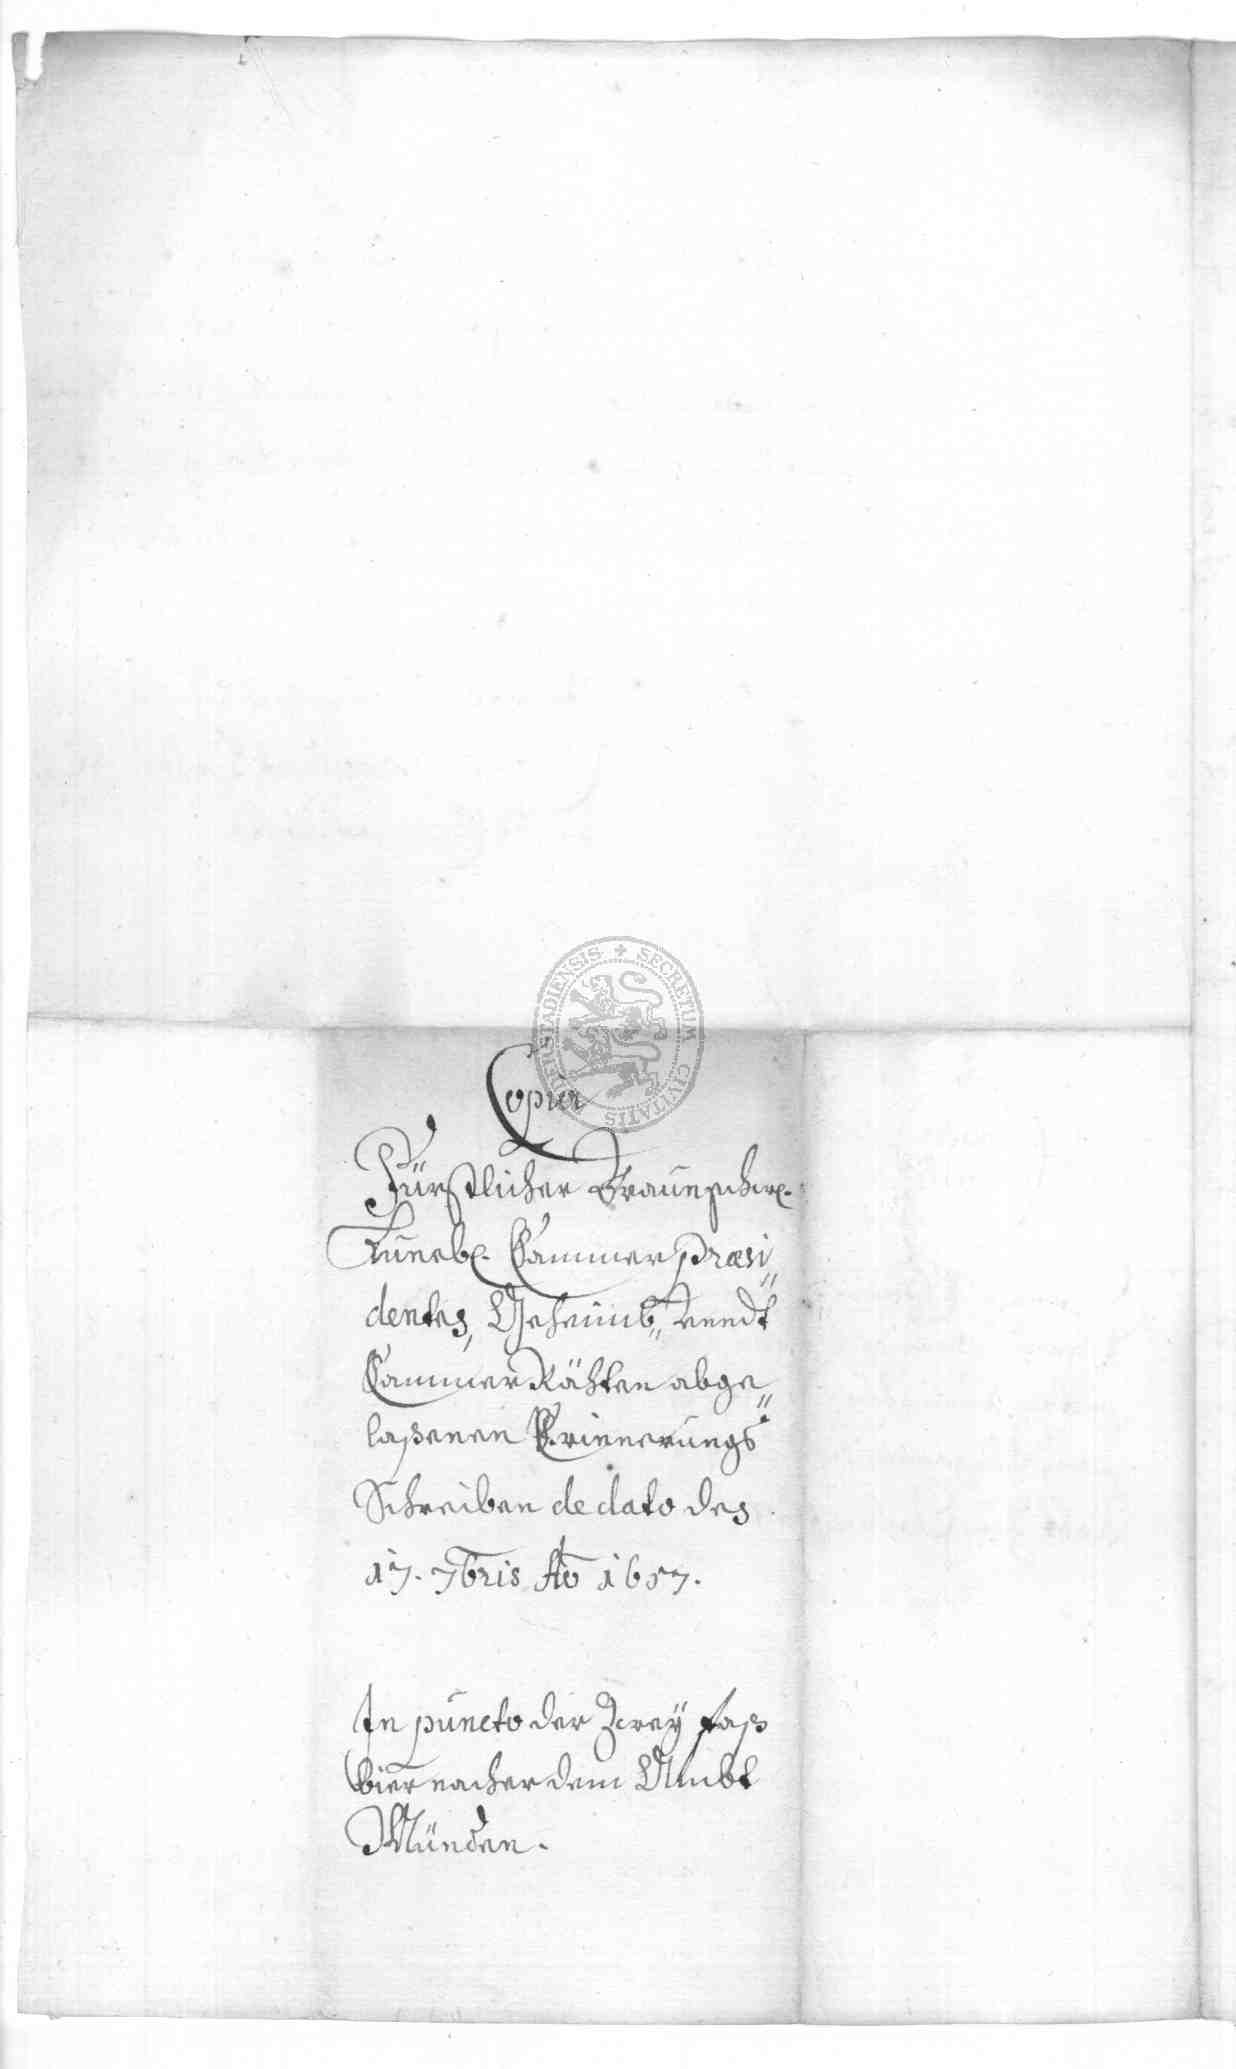 SECRETUM CIVITATIS DUDERSTADIENSIS
Copia
Fürstlicher Braunschw.
Luneb. Cammer Præsi
dentes, Geheimb= undt
Cammer Rähten abge
laßenen Erinnerungs
Schreiben de dato des
17. 7bris Ao 1657.
In puncto der Zwey faß
bier nacher dem Ambt
Münden.